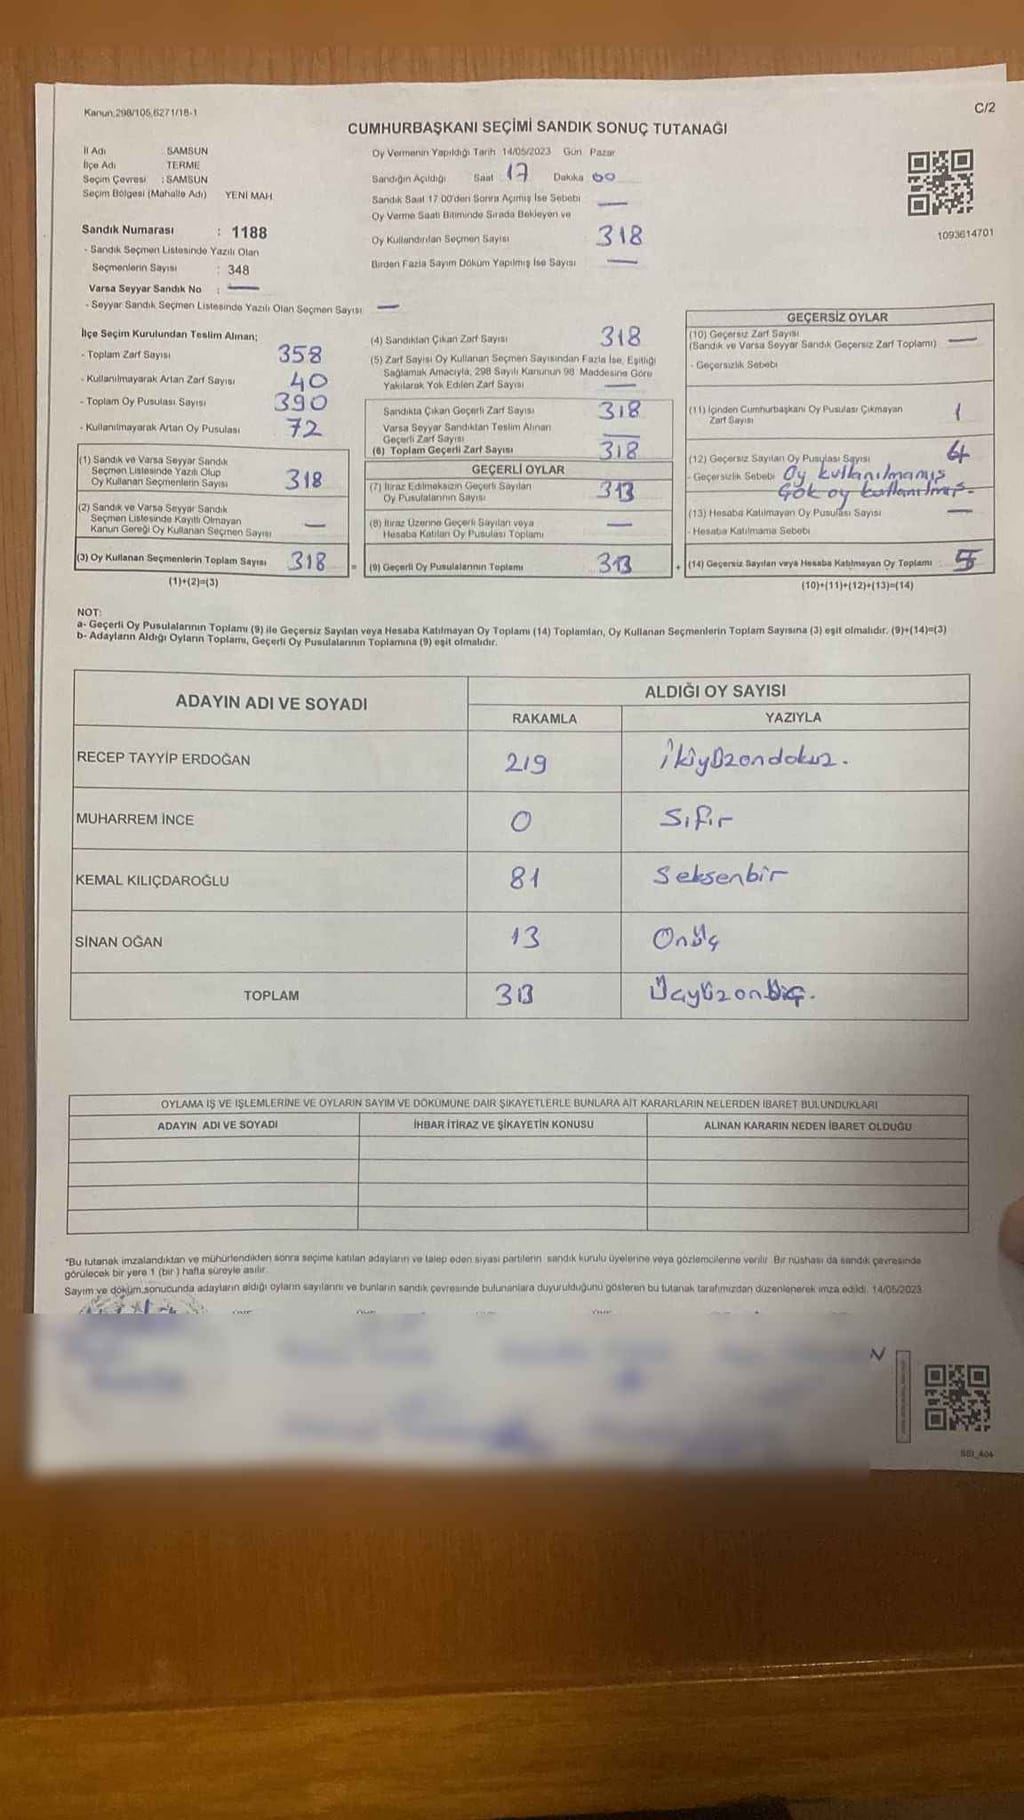 Kanun:298/105,6271/18-1
C/2
CUMHURBAŞKANI SEÇİMİ SANDIK SONUÇ TUTANAĞI
İl Adı : SAMSUN
İlçe Adı : TERME
Seçim Çevresi : SAMSUN
Seçim Bölgesi (Mahalle Adı) YENİ MAH
Sandık Numarası : 1188
- Sandık Seçmen Listesinde Yazılı Olan
Seçmenlerin Sayısı : 348
Varsa Seyyar Sandık No : —
- Seyyar Sandık Seçmen Listesinde Yazılı Olan Seçmen Sayısı —
Oy Vermenin Yapıldığı Tarih 14/05/2023 Gün Pazar
Sandığın Açıldığı Saat 17 Dakika 00
Sandık Saat 17:00'den Sonra Açımış İse Sebebi —
Oy Verme Saati Bitiminde Sırada Bekleyen ve
Oy Kullandırılan Seçmen Sayısı 318
Birden Fazla Sayım Döküm Yapılmış İse Sayısı —
1093614701
İlçe Seçim Kurulundan Teslim Alınan;
- Toplam Zarf Sayısı 358
- Kullanılmayarak Artan Zarf Sayısı 40
- Toplam Oy Pusulası Sayısı 390
- Kullanılmayarak Artan Oy Pusulası 72
(1) Sandık ve Varsa Seyyar Sandık
Seçmen Listesinde Yazılı Olup
Oy Kullanan Seçmenlerin Sayısı 318
(2) Sandık ve Varsa Seyyar Sandık
Seçmen Listesinde Kayıtlı Olmayan
Kanun Gereği Oy Kullanan Seçmen Sayısı —
(3) Oy Kullanan Seçmenlerin Toplam Sayısı 318
(1)+(2)=(3)
(4) Sandıktan Çıkan Zarf Sayısı 318
(5) Zarf Sayısı Oy Kullanan Seçmen Sayısından Fazla İse, Eşitliği
Sağlamak Amacıyla, 298 Sayılı Kanunun 98 Maddesine Göre
Yakılarak Yok Edilen Zarf Sayısı —
Sandıkta Çıkan Geçerli Zarf Sayısı 318
Varsa Seyyar Sandıktan Teslim Alınan
Geçerli Zarf Sayısı —
(6) Toplam Geçerli Zarf Sayısı 318
GEÇERLİ OYLAR
(7) İtiraz Edilmeksizin Geçerli Sayılan
Oy Pusulalarının Sayısı 313
(8) İtiraz Üzerine Geçerli Sayılan veya
Hesaba Katılan Oy Pusulası Toplamı —
= (9) Geçerli Oy Pusulalarının Toplamı 313
GEÇERSİZ OYLAR
(10) Geçersiz Zarf Sayısı
(Sandık ve Varsa Seyyar Sandık Geçersiz Zarf Toplamı) —
- Geçersizlik Sebebi
(11) İçinden Cumhurbaşkanı Oy Pusulası Çıkmayan
Zarf Sayısı 1
(12) Geçersiz Sayılan Oy Pusulası Sayısı 4
- Geçersizlik Sebebi Oy kullanılmamış
Çok oy kullanılmış.
(13) Hesaba Katılmayan Oy Pusulası Sayısı —
- Hesaba Katılmama Sebebi
+ (14) Geçersiz Sayılan veya Hesaba Katılmayan Oy Toplamı : 5
(10)+(11)+(12)+(13)=(14)
NOT:
a- Geçerli Oy Pusulalarının Toplamı (9) ile Geçersiz Sayılan veya Hesaba Katılmayan Oy Toplamı (14) Toplamları, Oy Kullanan Seçmenlerin Toplam Sayısına (3) eşit olmalıdır. (9)+(14)=(3)
b- Adayların Aldığı Oyların Toplamı, Geçerli Oy Pusulalarının Toplamına (9) eşit olmalıdır.
ADAYIN ADI VE SOYADI
ALDIĞI OY SAYISI
RAKAMLA YAZIYLA
RECEP TAYYİP ERDOĞAN 219 ikiyüzondokuz.
MUHARREM İNCE 0 Sıfır
KEMAL KILIÇDAROĞLU 81 Seksenbir
SİNAN OĞAN 13 Onüç
TOPLAM 313 Üçyüzonüç.
OYLAMA İŞ VE İŞLEMLERİNE VE OYLARIN SAYIM VE DÖKÜMÜNE DAİR ŞİKAYETLERLE BUNLARA AİT KARARLARIN NELERDEN İBARET BULUNDUKLARI
ADAYIN ADI VE SOYADI İHBAR İTİRAZ VE ŞİKAYETİN KONUSU ALINAN KARARIN NEDEN İBARET OLDUĞU
*Bu tutanak imzalandıktan ve mühürlendikten sonra seçime katılan adayların ve talep eden siyasi partilerin sandık kurulu üyelerine veya gözlemcilerine verilir. Bir nüshası da sandık çevresinde
görülecek bir yere 1 (bir ) hafta süreyle asılır.
Sayım ve döküm sonucunda adayların aldığı oyların sayılarını ve bunların sandık çevresinde bulunanlara duyurulduğunu gösteren bu tutanak tarafımızdan düzenlenerek imza edildi. 14/05/2023
N